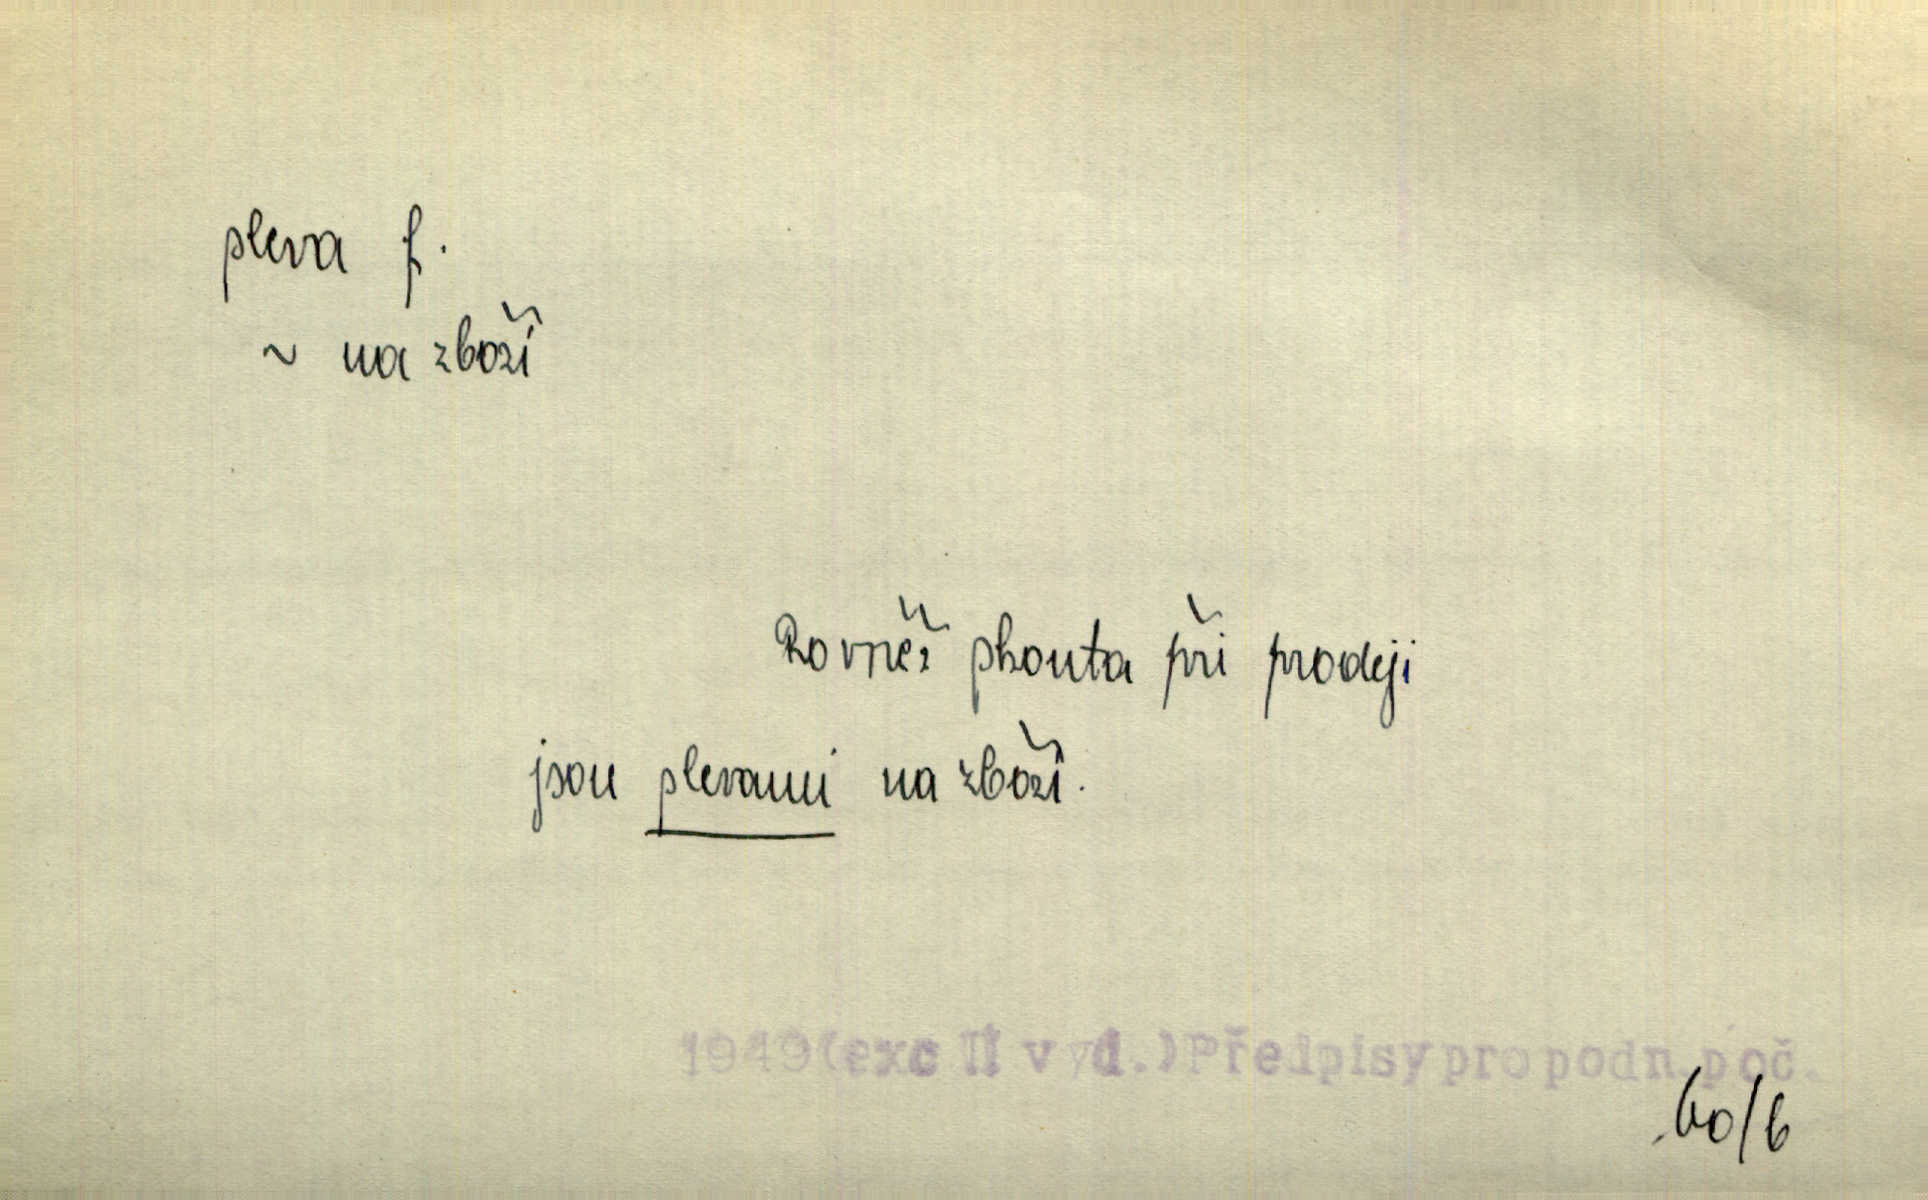 pleva f.
~ na zboží
Rovněž skonta při prodeji
jsou slevami na zboží.
1949(exc II vyd.)Předpisy pro podn.poč.
60/6